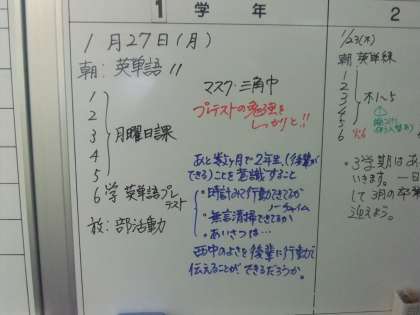 1 学 年
1月27日(月)
朝: 英単語 11
1
2
3 月曜日課
4
5
6 学 英単語プレテスト
放: 部活動
マスク・三角巾
プレテストの勉強をしっかりと!!
あと数ヶ月で2年生(後輩ができる)ことを意識すること
・時計みて行動できてるか
ノーチャイム
・無言清掃できてるか
・あいさつは…
西中のよさを後輩に行動で
伝えることができるだろうか。
2
1/23(木)
朝 英単
1
2
3 木1〜5
4
5
・3学期はあ
いきます。 一日
して3月の卒業
迎えよう。